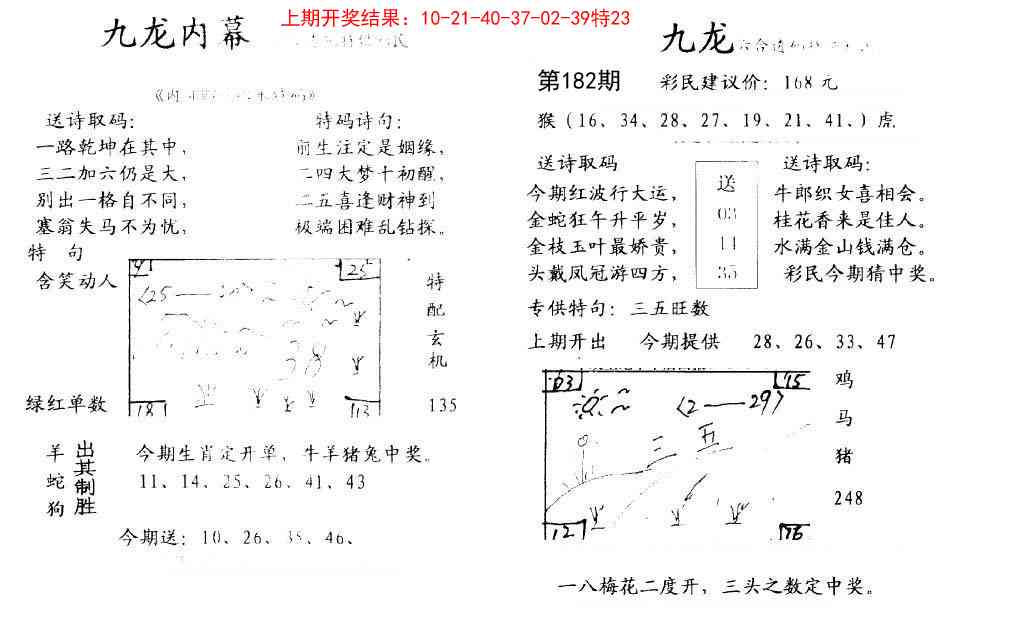 上期开奖结果：10-21-40-37-02-39特23
九龙内幕
送诗取码：
一路乾坤在其中，
三二加六仍是大，
别出一格自不同，
塞翁失马不为忧，
特码诗句：
前生注定是姻缘，
二四大梦十初醒，
二五喜逢财神到
极端困难乱钻探。
特 句
含笑动人
绿红单数
4
25
〈25——
38
181
113
特
配
玄
机
135
羊
蛇
狗
出其制胜
今期生肖定开单，牛羊猪兔中奖。
11、14、25、26、41、43
今期送：10、26、35、46、
九龙
第182期
彩民建议价：168元
猴（16、34、28、27、19、21、41、）虎
送诗取码
今期红波行大运，
金蛇狂午升平岁，
金枝玉叶最娇贵，
头戴凤冠游四方，
送
03
11
35
送诗取码：
牛郎织女喜相会。
桂花香来是佳人。
水满金山钱满仓。
彩民今期猜中奖。
专供特句：三五旺数
上期开出 今期提供 28、26、33、47
03
15
〈2——29〉
三 五
12
76
鸡
马
猪
248
一八梅花二度开，三头之数定中奖。